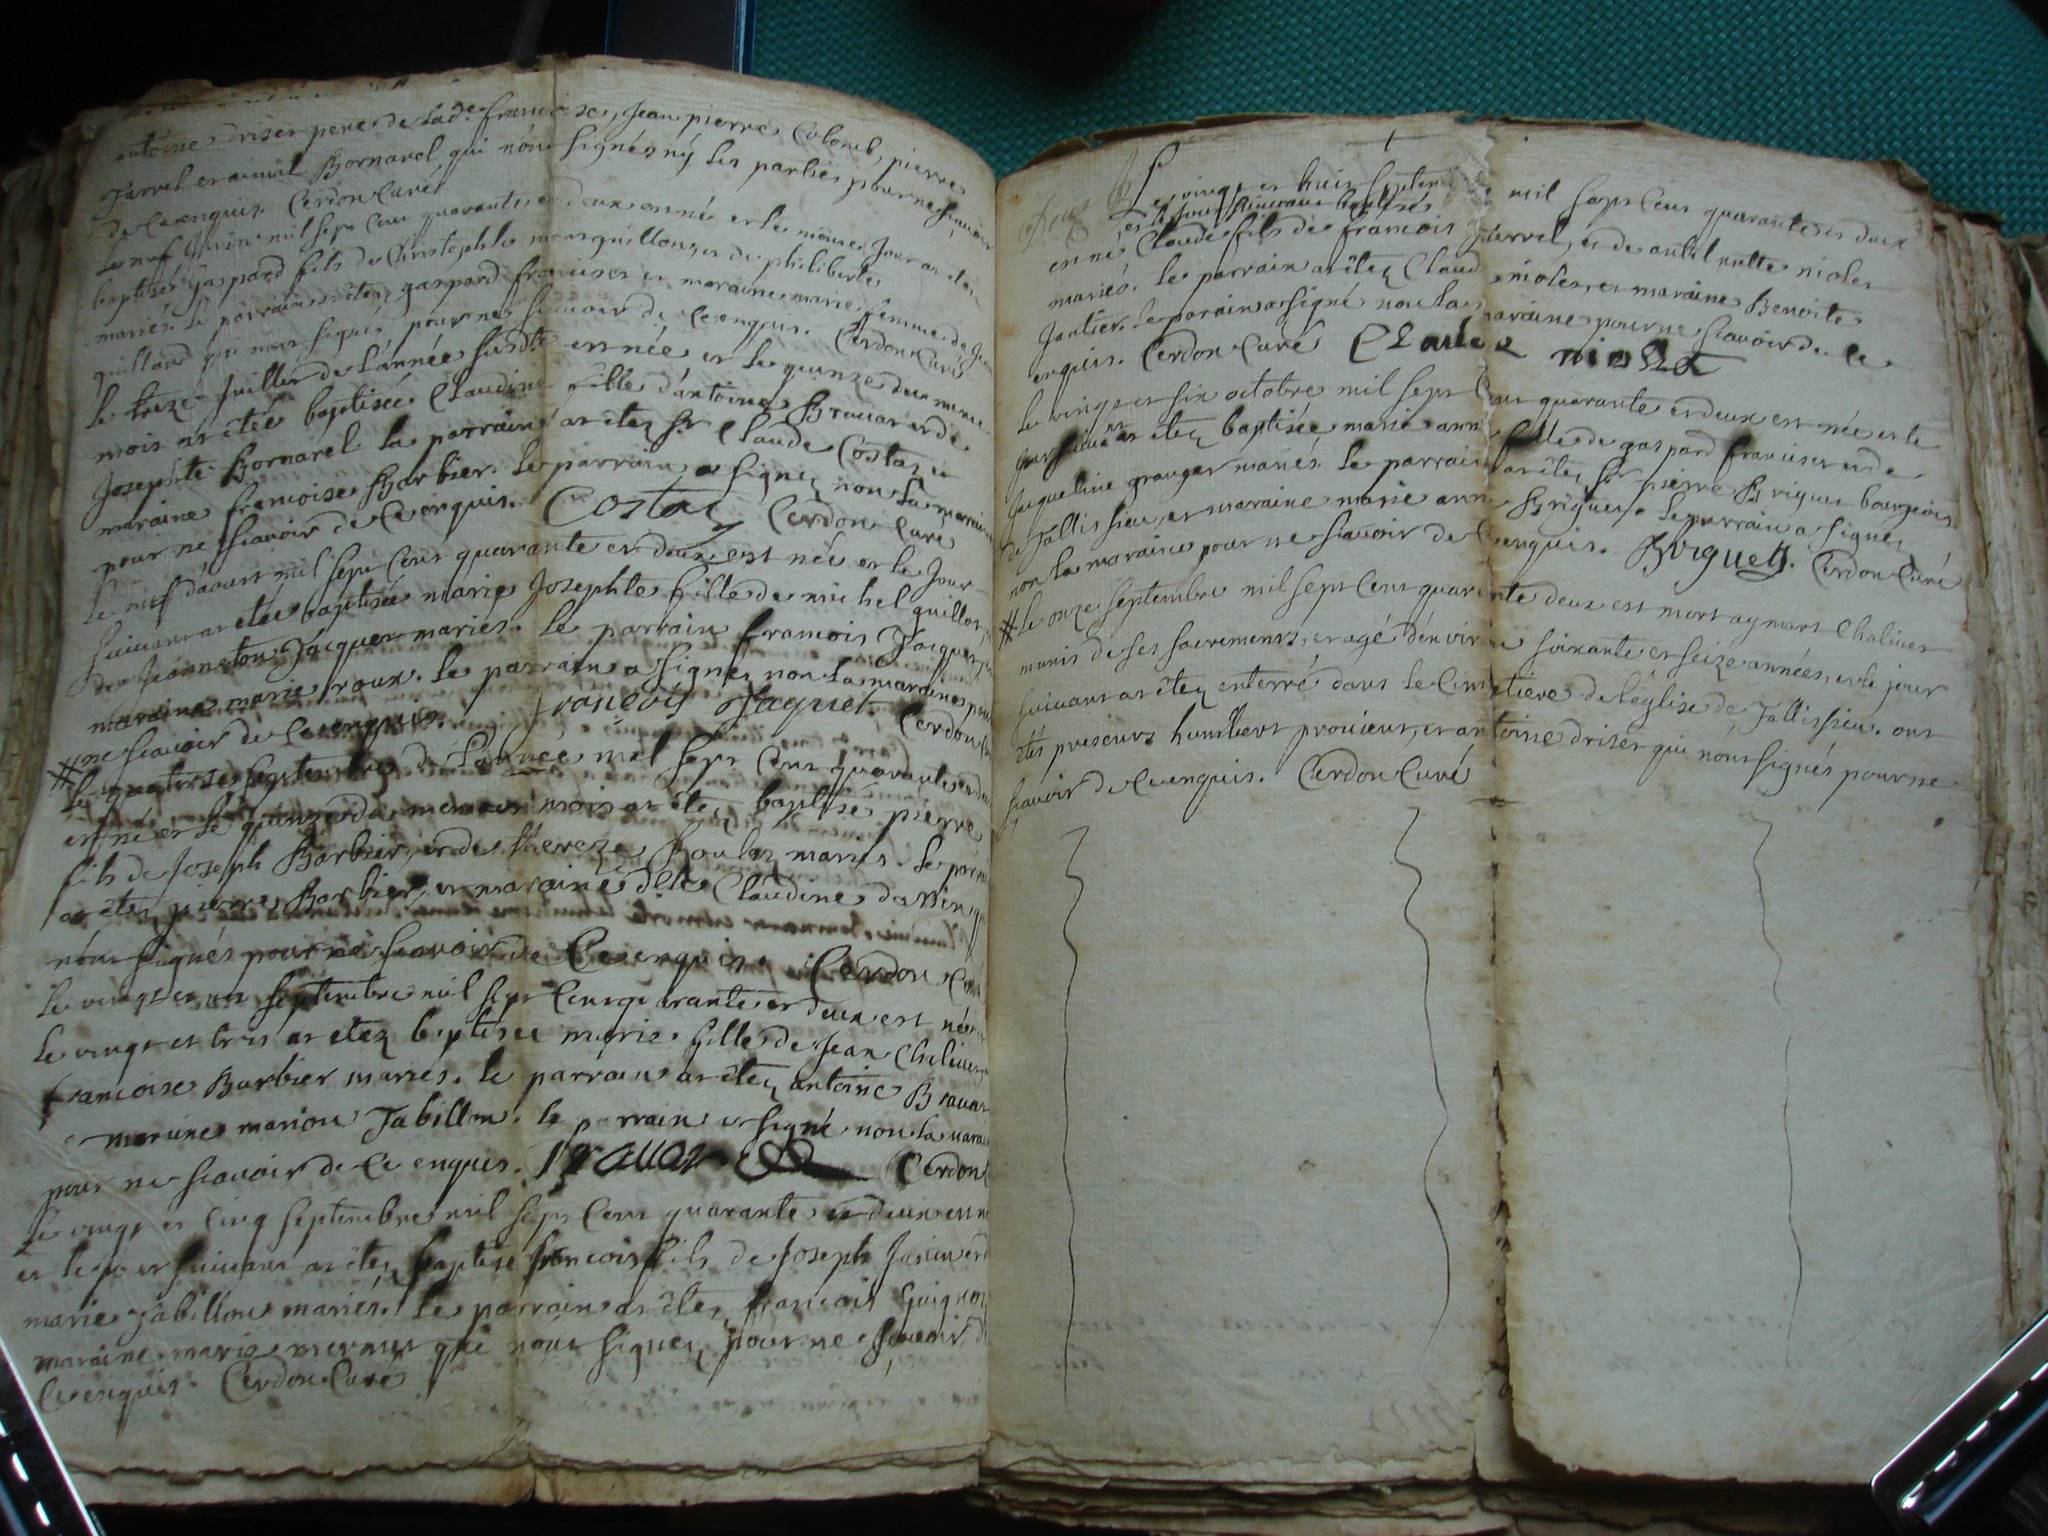 antoine driset pere de lade. francoise, Jean pierre Colomb, pierre
Jarvel et aimil Bornarel qui n'ont signés ny les parties pour ne scavoir
de ce enquis. Cerdon Curé
le neuf Juin mil sept Cent quarante et deux est né et le même Jour at eté
baptisé gaspard fils de Christophle monguillon et de philiberte
mariés. le parrain at êtez gaspard franciset et maraine marie femme de
guilland qui n'ont signés pour ne scavoir de ce enquis. Cerdon Curé
le treze Juillet de l'année susdte. est née et le quinze du meme
mois at êtée baptisée Claudine fille d'antoine Bravat et de
Josephte Bornarel le parrain at êtez sr. Claude Costaz et
maraine francoise Barbier. le parrain a signez non la maraine
pour ne scavoir de ce enquis. Costaz Cerdon Curé
le neuf d'aoust mil sept Cent quarante et deux est née et le Jour
suivant at etée baptisée marie Josephte fille de michel guillot
de Jeanneton Jacquet mariés. le parrain francois Jacquet, et
maraine marie roux. le parrain a signez non la maraine pour
ne scavoir de ce enquis. françois Jaquet Cerdon
# le quatorse septembre de l'année mil sept Cent quarante et deux
est né et le quinze du meme mois at êtez baptisé pierre
fils de Joseph Barbier, et de thereze Roulez mariés. le parrain
at êtez pierre Barbier, et maraine dlle Claudine dassin qui
n'ont signés pour ne scavoir de Ce enquis. Cerdon Curé
le vingt et un septembre mil sept Cent quarante et deux est née
le vingt et trois at etez baptisée marie fille de Jean Chaliuet
francoise Barbier mariés. le parrain at êtez antoine Bravat
maraine marion Jabillon. le parrain a signé non la maraine
pour ne scavoir de Ce enquis. Bravaz Cerdon
le vingt et Cinq septembre mil sept Cent quarante et deux est né
et le jour suivant at êtez baptisé francois fils de Joseph et de
marie Jabillon mariés. le parrain at êtez francois Guignon
maraine marie mermet qui n'ont signez pour ne scavoir de
Ce enquis. Cerdon Curé
Le vingt et huit septembre mil sept Cent quarante et deux
et le Jour suivant baptisé
est né Claude fils de francois Jarvel, et de nicolet
mariés. le parrain at êtez Claude nicolet, et maraine Benoite
Jantier. le parain a signé non la maraine pour ne scavoir de ce
enquis. Cerdon Curé Claude
le vingt et six octobre mil sept Cent quarante et deux est née et le
jour suivant at etez baptisée marie anne fille de gaspard franciset et de
Jaqueline granger mariés. le parrain at êtez sr. pierre Briguet bourgeois
de Jallissieu, et maraine marie anne Briguet. le parrain a signez
non la maraine pour ne scavoir de Ce enquis. Briguet. Cerdon Curé
# le onze septembre mil sept Cent quarante deux est mort aymart Chaliuet
munis de ses sacrements, et agé d'environ soixante et seize années, et le jour
suivant at êtez enterré dans le Cimetiere de l'église de Jallissieu. ont
êtés presents humbert et antoine driset qui n'ont signés pour ne
scavoir de Ce enquis. Cerdon Curé